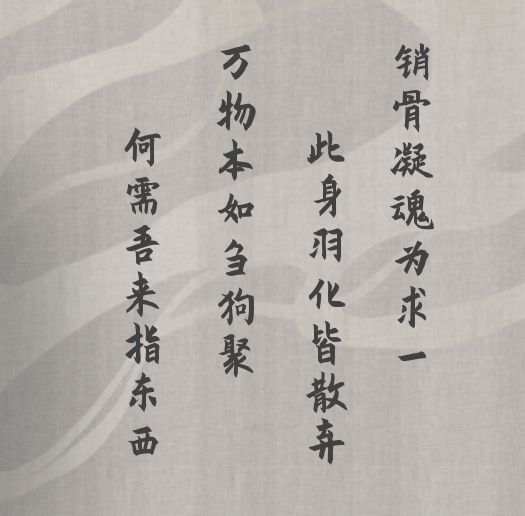 销骨凝魂为求一
此身羽化皆散弃
万物本如刍狗聚
何需吾来指东西